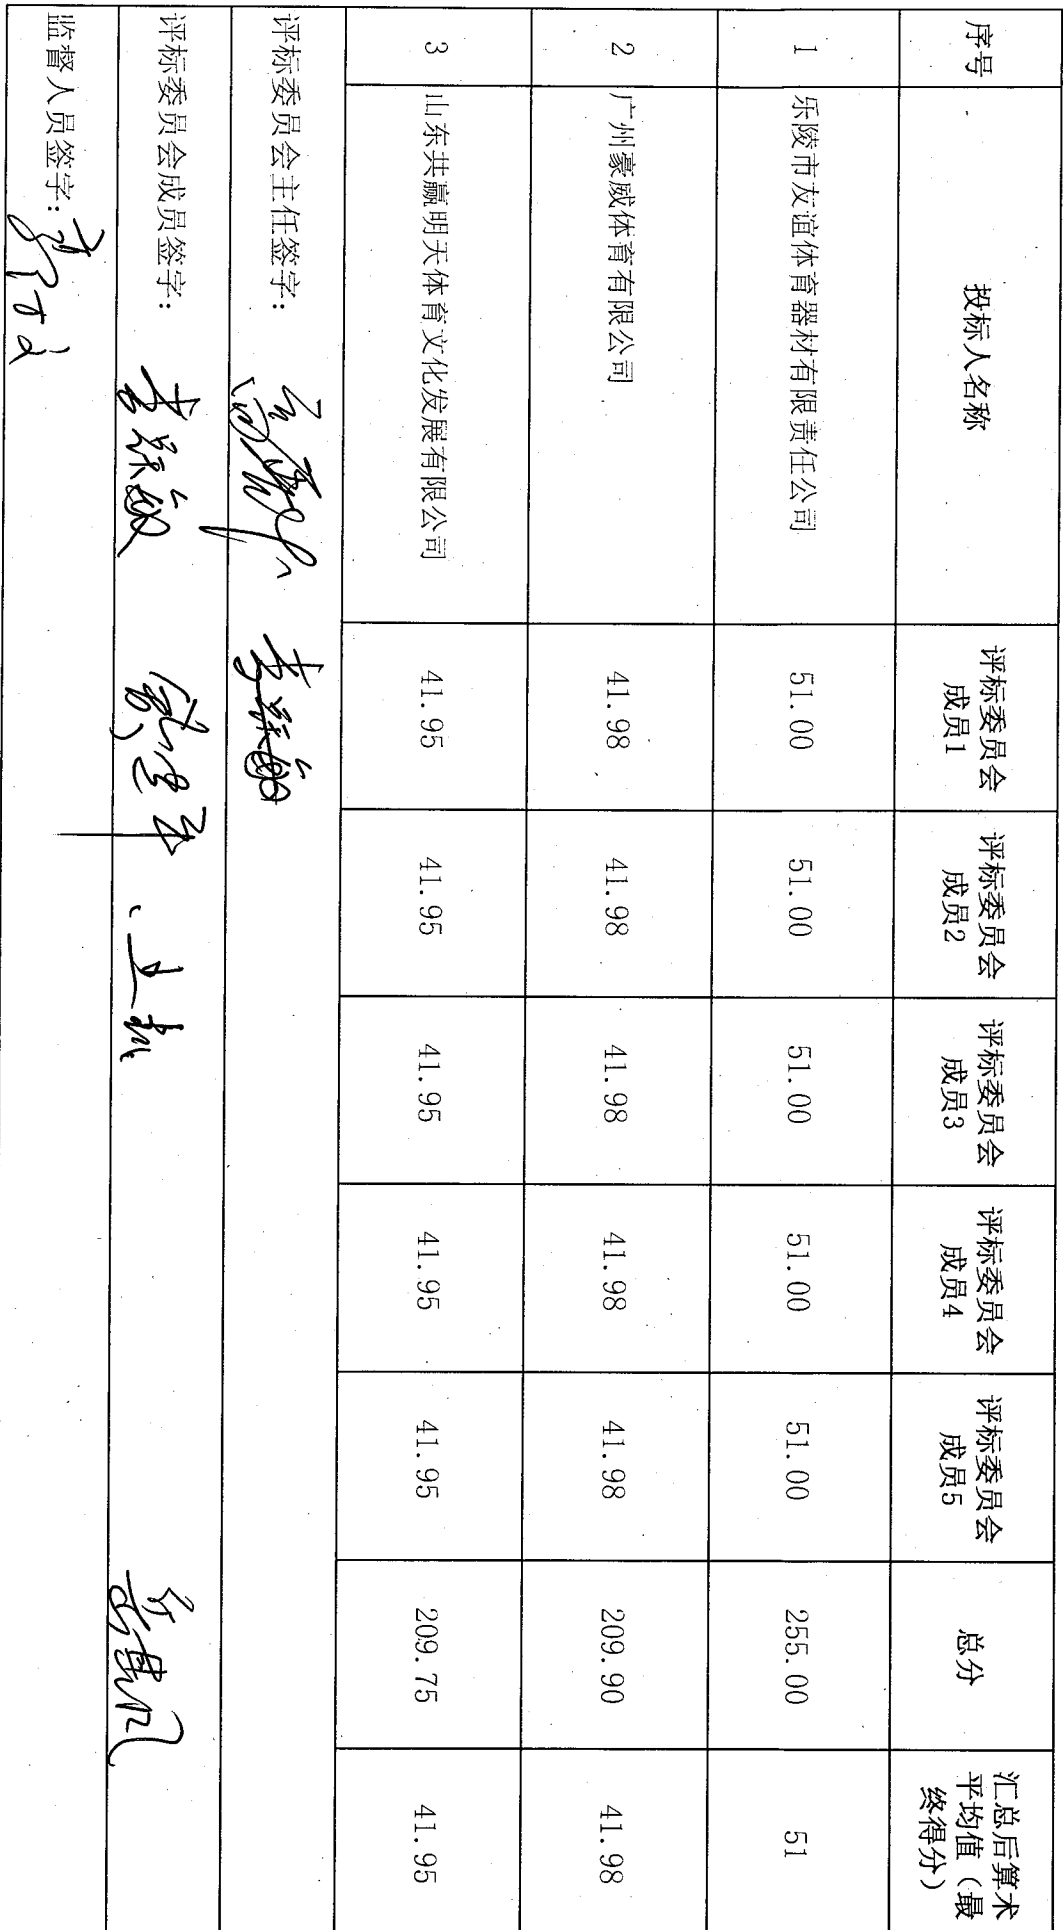 序号 投标人名称 评标委员会成员1 评标委员会成员2 评标委员会成员3 评标委员会成员4 评标委员会成员5 总分 汇总后算术平均值（最终得分）
1 乐陵市友谊体育器材有限责任公司 51.00 51.00 51.00 51.00 51.00 255.00 51
2 广州豪威体育有限公司 41.98 41.98 41.98 41.98 41.98 209.90 41.98
3 山东共赢明天体育文化发展有限公司 41.95 41.95 41.95 41.95 41.95 209.75 41.95
评标委员会主任签字：
评标委员会成员签字：
监督人员签字：